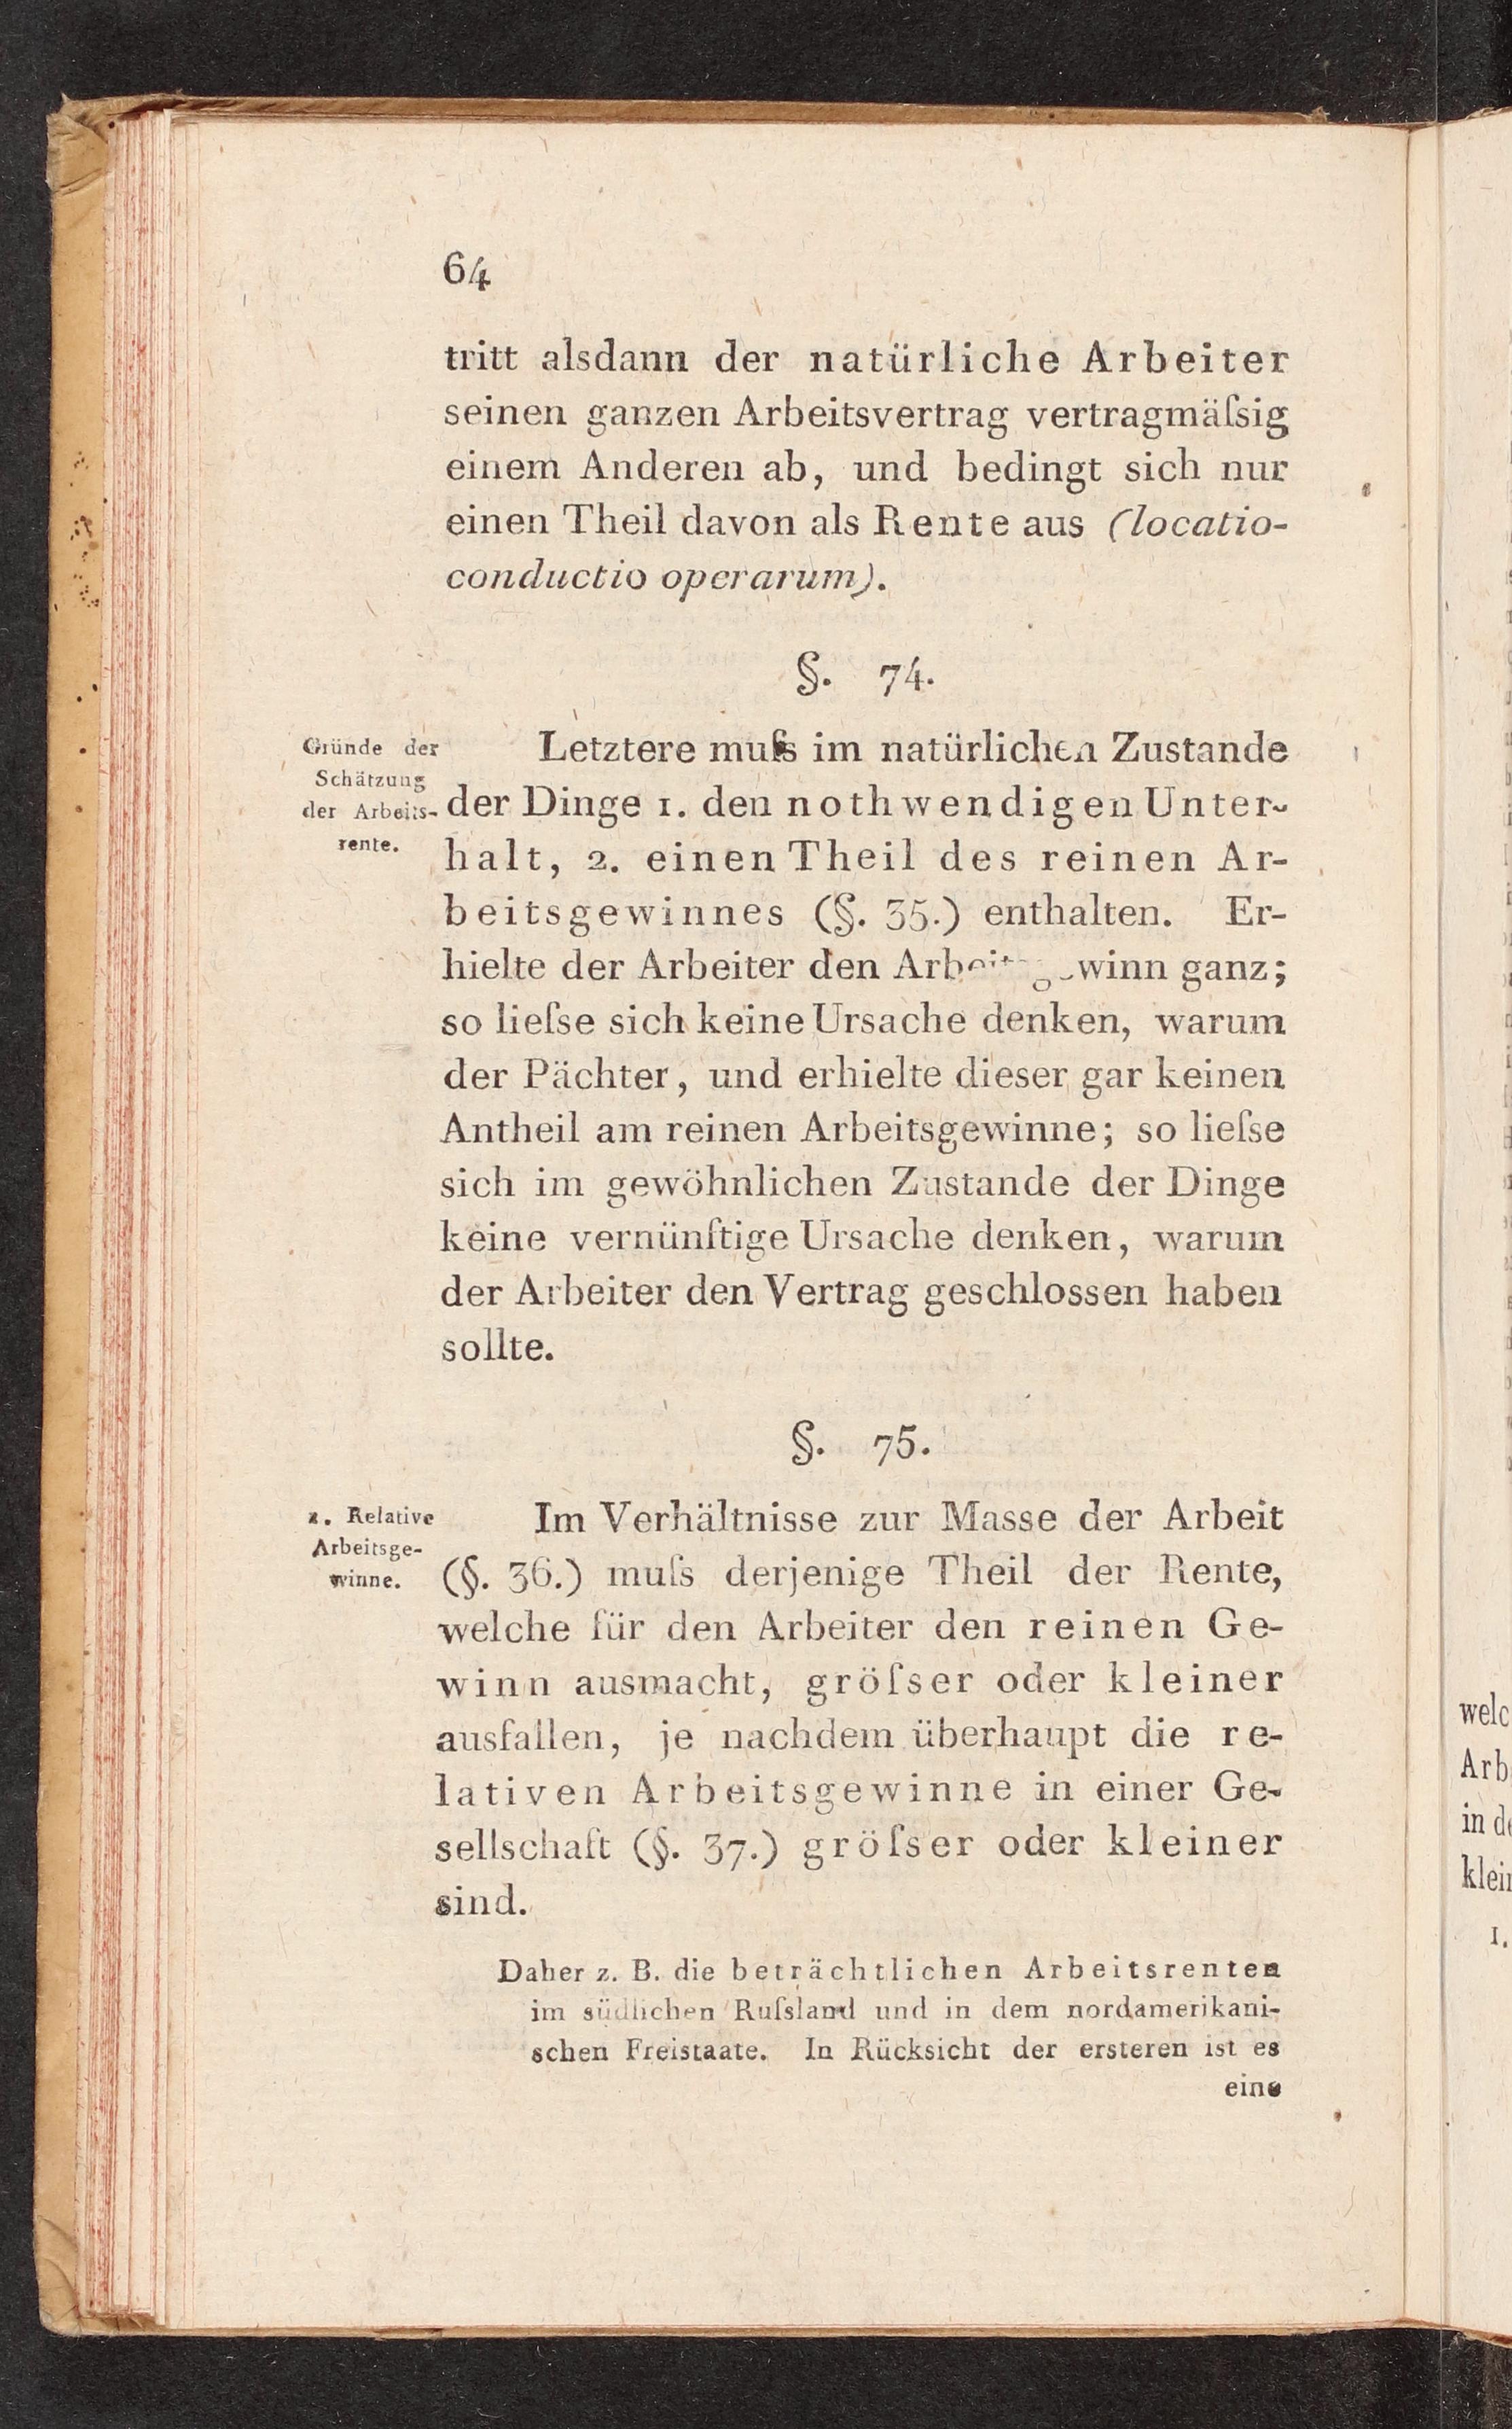 64
tritt alsdann der natürliche Arbeiter
seinen ganzen Arbeitsvertrag vertragmäſsig
einem Anderen ab, und bedingt sich nur
einen Theil davon als Rente aus (locatio-
conductio operarum).
§. 74.
Gründe der
Schätzung
der Arbeits-
rente.
Letztere muſs im natürlichen Zustande
der Dinge 1. den nothwendigen Unter-
halt, 2. einen Theil des reinen Ar-
beitsgewinnes (§. 35.) enthalten. Er-
hielte der Arbeiter den ganz;
so lieſse sich keine Ursache denken, warum
der Pächter, und erhielte dieser gar keinen
Antheil am reinen Arbeitsgewinne; so lieſse
sich im gewöhnlichen Zustande der Dinge
keine vernünftige Ursache denken, warum
der Arbeiter den Vertrag geschlossen haben
sollte.
§. 75.
1. Relative
Arbeitsge-
winne.
Im Verhältnisse zur Masse der Arbeit
(§. 36.) muſs derjenige Theil der Rente,
welche für den Arbeiter den reinen Ge-
winn ausmacht, gröſser oder kleiner
ausfallen, je nachdem überhaupt die re-
lativen Arbeitsgewinne in einer Ge-
sellschaft (§. 37.) gröſser oder kleiner
sind.
Daher z. B. die beträchtlichen Arbeitsrenten
im südlichen Ruſsland und in dem nordamerikani-
schen Freistaate. In Rücksicht der ersteren ist es
eine
welc
Arb
in de
klei
1.